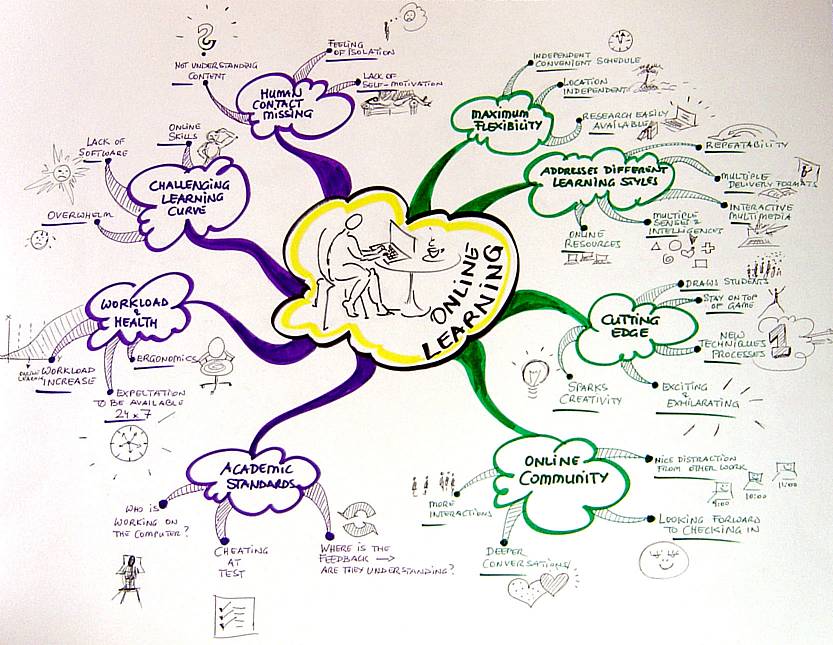 ONLINE
LEARNING
HUMAN
CONTACT
MISSING
FEELING
OF ISOLATION
LACK OF
SELF-MOTIVATION
NOT UNDERSTANDING
CONTENT
?
CHALLENGING
LEARNING
CURVE
ONLINE
SKILLS
LACK OF
SOFTWARE
OVERWHELM
WORKLOAD
&
HEALTH
X
WORKLOAD
INCREASE
ERGONOMICS
EXPECTATION
TO BE AVAILABLE
24x7
ACADEMIC
STANDARDS
WHO IS
WORKING ON
THE COMPUTER?
CHEATING
AT
TEST
WHERE IS THE
FEEDBACK →
ARE THEY UNDERSTANDING?
MAXIMUM
FLEXIBILITY
INDEPENDENT
CONVENIENT SCHEDULE
LOCATION
INDEPENDENT
RESEARCH EASILY
AVAILABLE
ADDRESSES DIFFERENT
LEARNING STYLES
REPEATABILITY
MULTIPLE
DELIVERY FORMATS
INTERACTIVE
MULTIMEDIA
MULTIPLE
SENSES &
INTELLIGENCES
ONLINE
RESOURCES
CUTTING
EDGE
DRAWS STUDENTS
STAY ON TOP
OF GAME
NEW
TECHNIQUES
PROCESSES
1
EXCITING
&
EXHILARATING
SPARKS
CREATIVITY
ONLINE
COMMUNITY
NICE DISTRACTION
FROM OTHER WORK
9:00
10:00
11:00
LOOKING FORWARD
TO CHECKING IN
MORE
INTERACTIONS
DEEPER
CONVERSATIONS